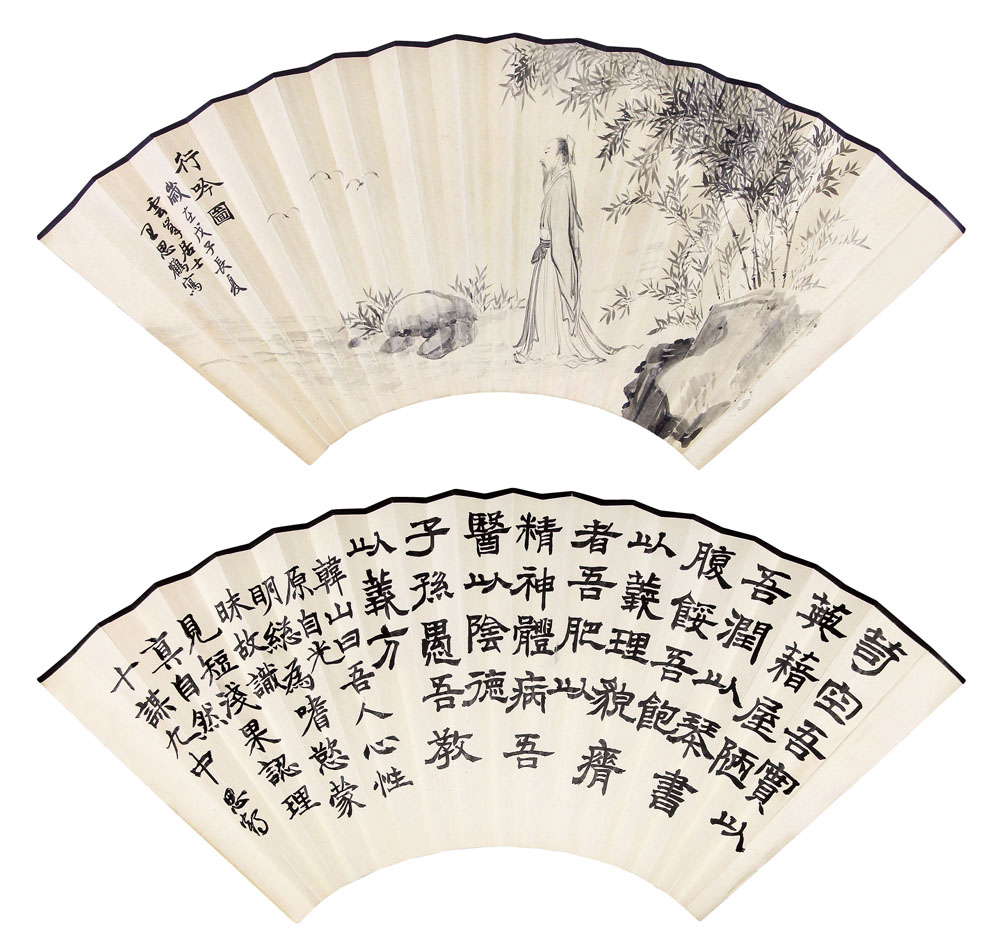 行吟圖
歲在戊子長夏
居士
思鶴寫
空吾實以
藉屋陋以
吾潤以琴書
腹餒吾飽
以義理貌瘠
者吾肥以
精神體病吾
醫以陰德
子孫愚吾教
以義方
韓山曰吾人心性
原自光
明總為嗜慾蒙
昧故識
見短淺果認理
真自然
十謀九中
思鶴